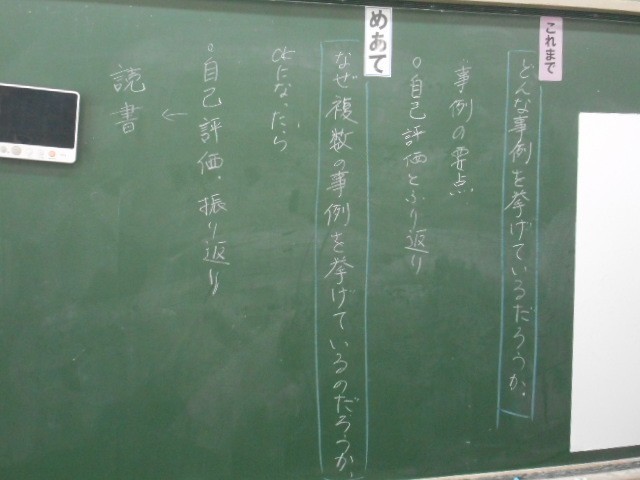 これまで
どんな事例を挙げているだろうか。
事例の要点
○自己評価とふり返り
めあて
なぜ複数の事例を挙げているのだろうか。
okになったら
○自己評価、振り返り
↓
読書